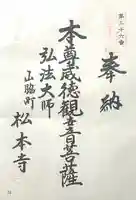 第三十六番
奉納
本尊蔵徳観音菩薩
弘法大師
山脇町
松本寺